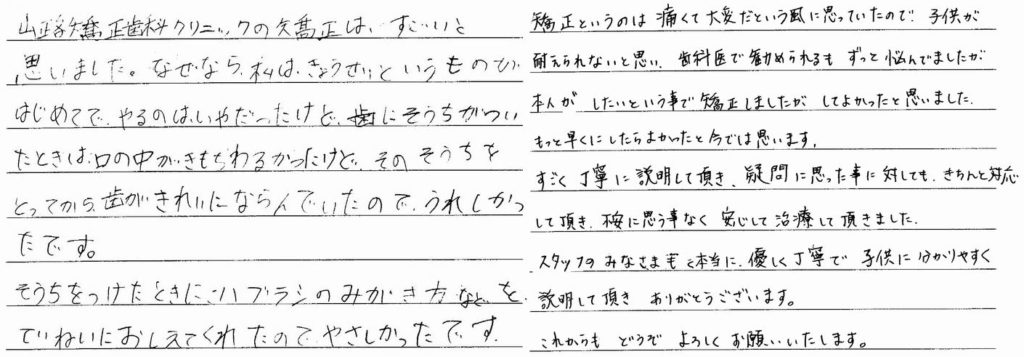 山路矯正歯科クリニックの矯正は、すごいと
思いました。なぜなら、私は、きょうせいというものが
はじめてで、やるのはいやだったけど、歯にそうちがつい
たときは、口の中がきもちわるかったけど、その そうちを
とってから、歯がきれいにならんでいたので、うれしかっ
たです。
そうちをつけたときに、ハブラシのみがき方などを
ていねいにおしえてくれたので、やさしかったです。
矯正というのは 痛くて大変だという風に思っていたので 子供が
耐えられないと思い、歯科医で勧められるも ずっと悩んでましたが
本人が したいという事で矯正しましたが してよかったと思いました。
もっと早くにしたらよかったと今では思います。
すごく丁寧に説明して頂き、疑問に思った事に対しても、きちんと対応
して頂き、不安に思う事なく 安心して治療して頂きました。
スタッフの みなさまも 本当に、優しく丁寧で 子供に分かりやすく
説明して頂き ありがとうございます。
これからも どうぞ よろしく お願いいたします。